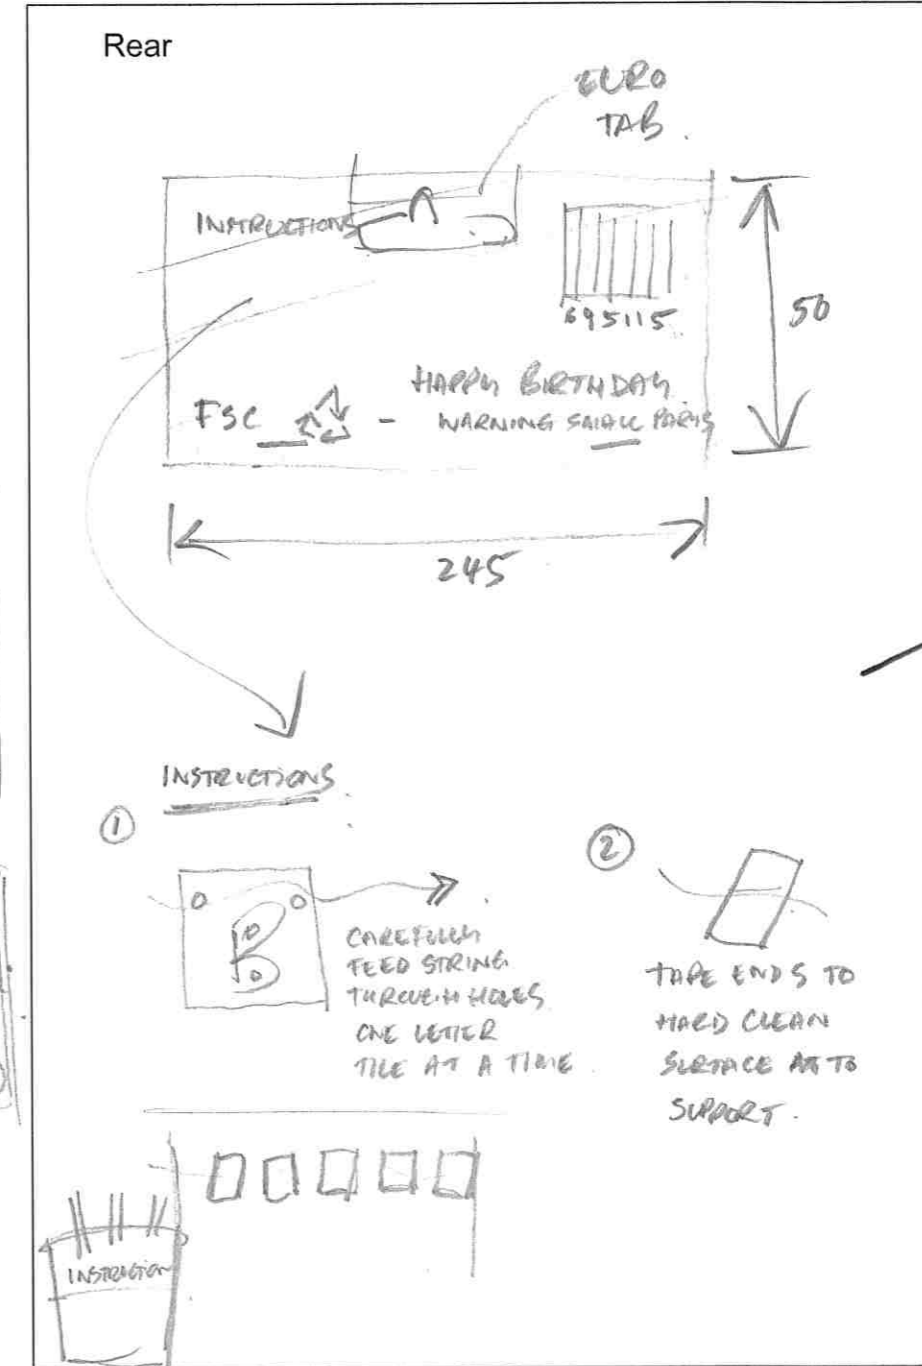 Rear
EURO
TAB.
INSTRUCTIONS
695115
50
HAPPY BIRTHDAY
FSC - WARNING SMALL PARTS
245
INSTRUCTIONS
1
2
B
CAREFULLY
FEED STRING
THROUGH HOLES
ONE LETTER
TILE AT A TIME.
TAPE ENDS TO
HARD CLEAN
SURFACE TO
SUPPORT.
INSTRUCTION